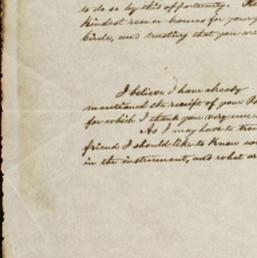 to do so by this opportunity.
kindest remembrances for your
Circle, and trusting that you are
I believe I have already
mentioned the receipt of your
for which I thank you very
As I may have to
friend I should like to know
in the instrument, and what